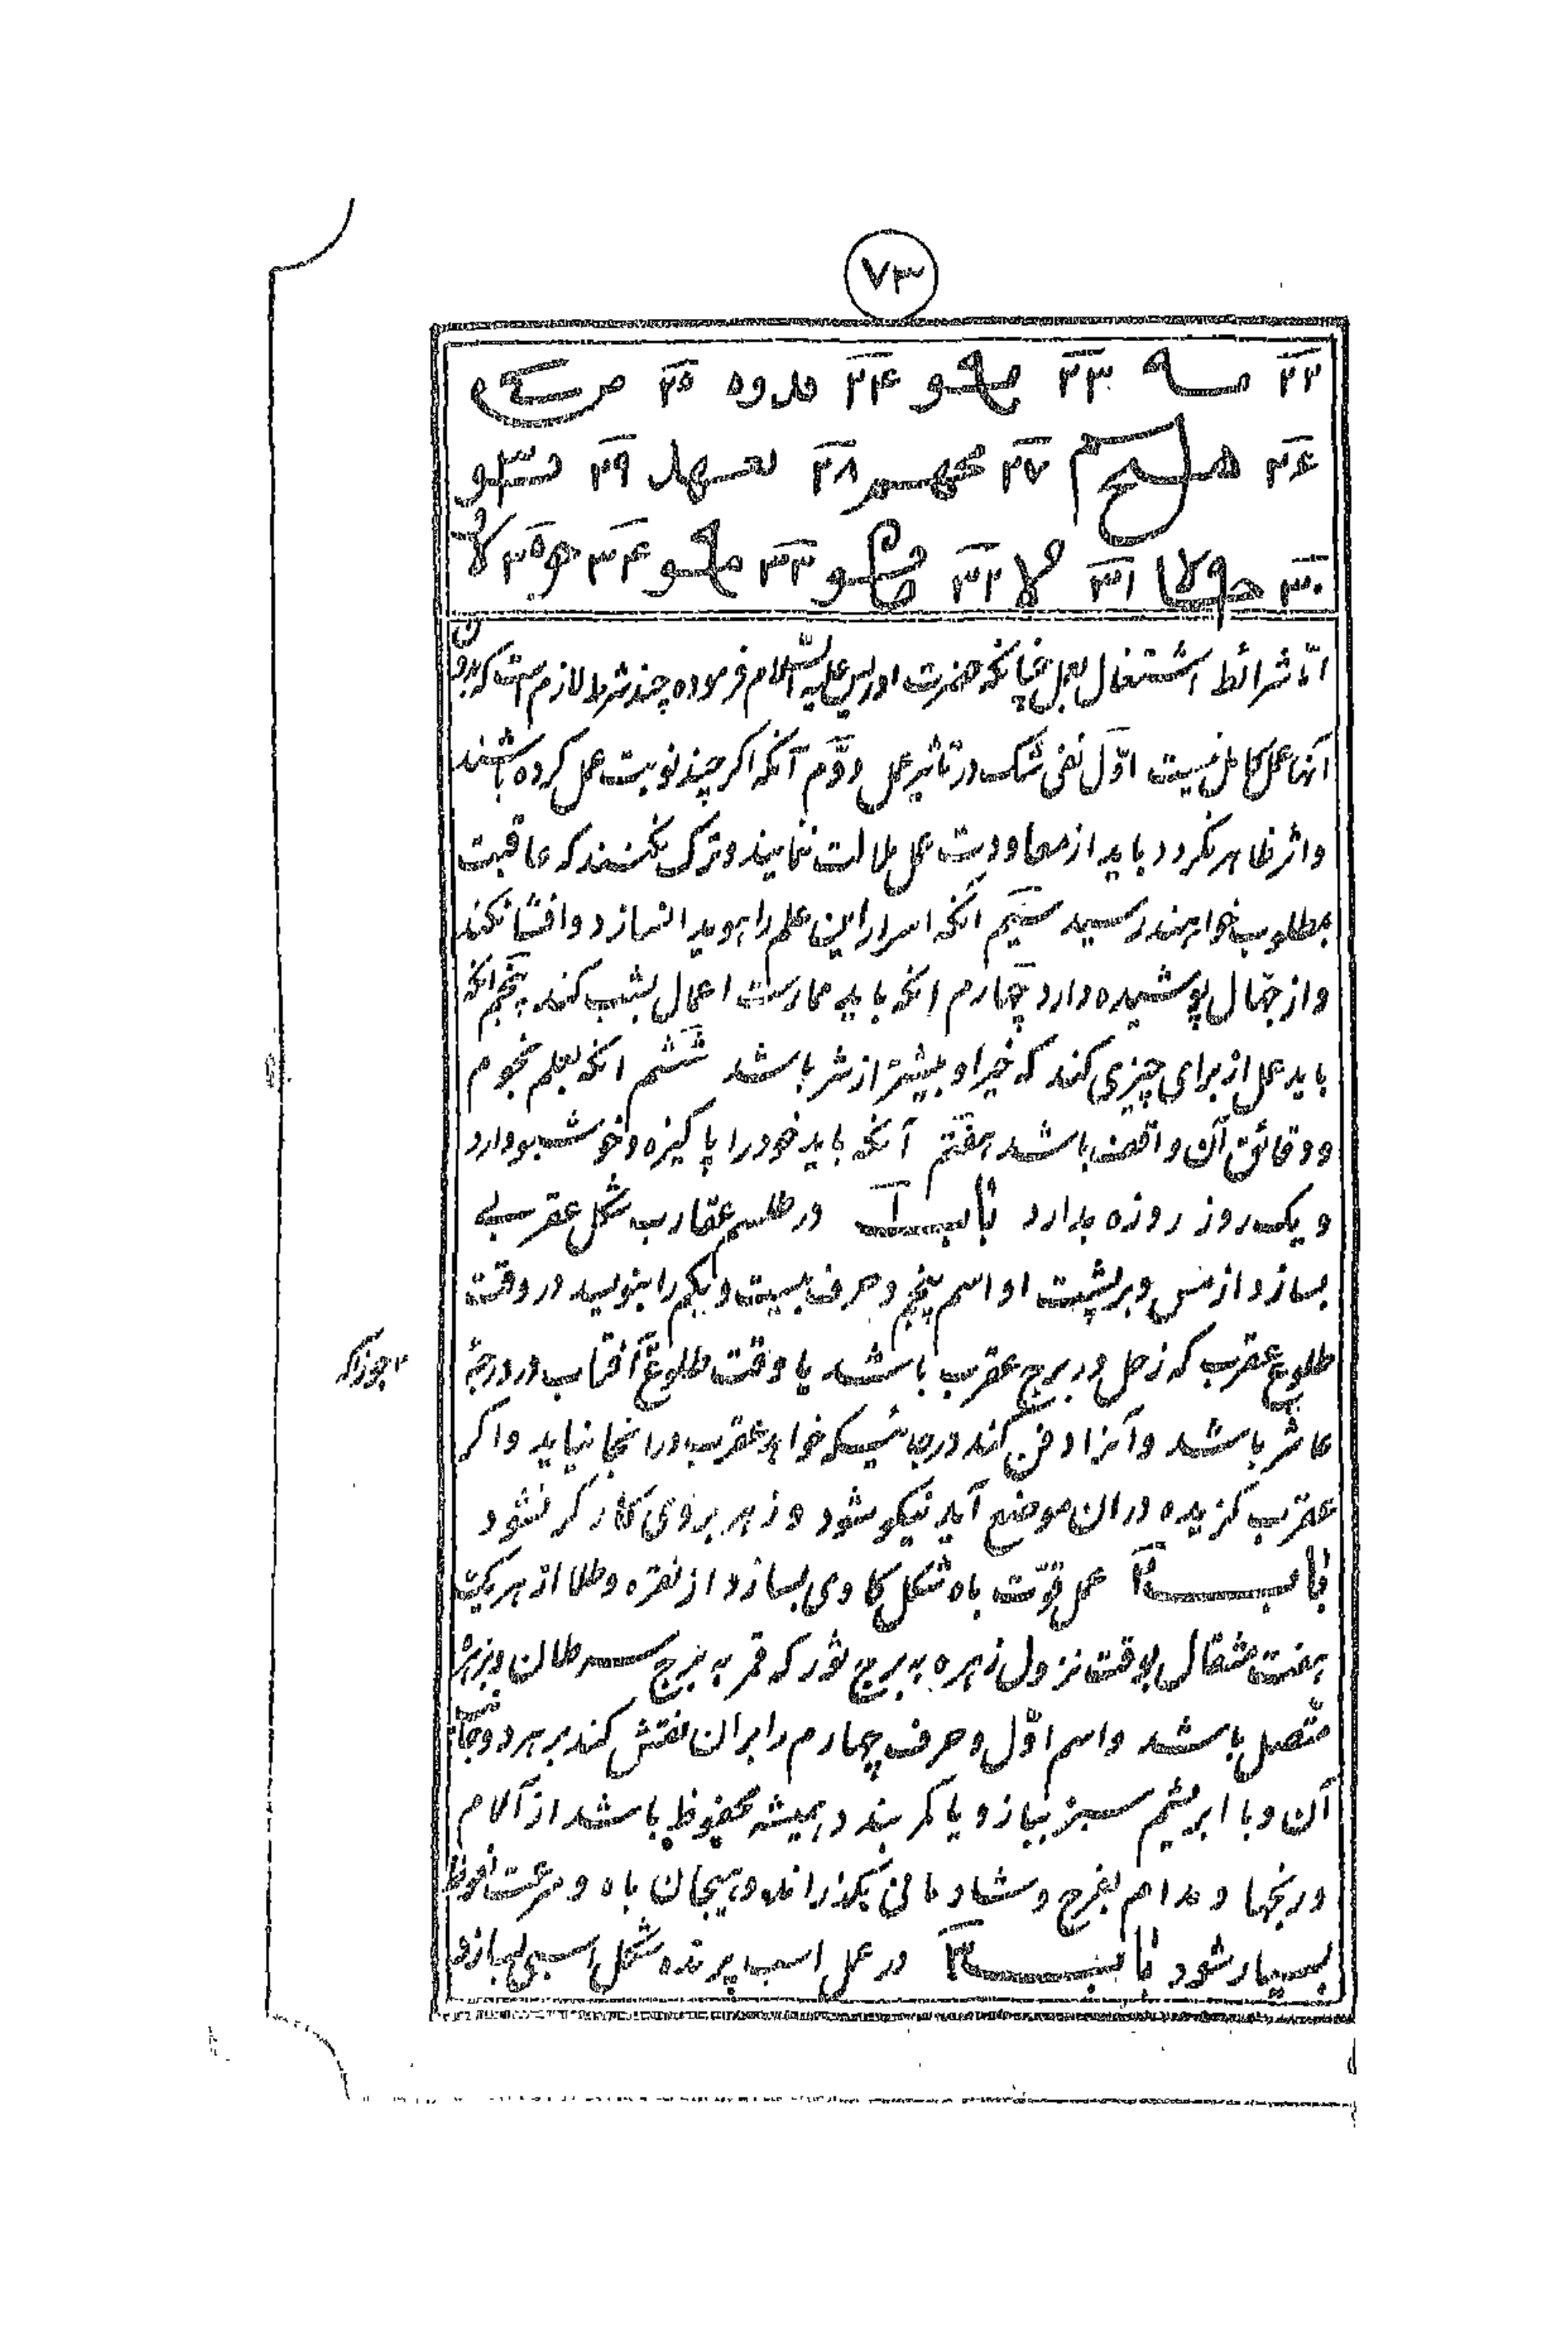 ۷۳
۲۲ ۲۳ ۲۴ ۲۵
۲۶ ۲۷ ۲۸ ۲۹
۳۰ ۳۱ ۳۲ ۳۳ ۳۴ ۳۵
امّا شرائط اشتغال بعمل چنانکه حضرت ادریس علیه السّلام فرموده چند شرط لازم است که بدون
آنها عمل کامل نیست اوّل نفی شک در تاثیر عمل دوّم آنکه اکر چند نوبت عمل کرده باشند
و اثر ظاهر نکردد باید از معاودت عمل ملالت ننمایند و ترک نکنند که عاقبت
بمطلوب خواهند رسید سیّم انکه اسرار این علم را هویدا نسازد و افشا نکند
و از جهال پوشیده دارد چهارم انکه باید ممارست اعمال بشب کند پنجم انکه
باید عمل از برای چیزی کند که خیر او بیشتر از شر باشد ششم انکه بعلم نجوم
و دقائق آن واقف باشد هفتم آنکه باید خود را پاکیزه و خوشبو دارد
و یک روز روزه بدارد باب ۱ در طلسم عقارب شکل عقربی
بسازد از مس و بر پشت او اسم پنجم و حرف بیست و یکم را بنویسد در وقت
طلوع عقرب که زحل در برج عقرب باشد یا وقت طلوع آفتاب در درجهٔ
۲ جوزا که
عاشر باشد و آنرا دفن کند در جائیکه خواهد عقرب در انجا نیاید و اکر
عقرب کزیده در ان موضع آید نیکو شود و زهر بر وی کارکر نشود
باب ۲ عمل قوّت باه شکل کاوی بسازد از نقره و طلا از هر یک
هفت مثقال بوقت نزول زهره به برج ثور که قمر به برج سرطان و بزهره
متّصل باشد و اسم اوّل و حرف چهارم را بران نقش کند بر هر دو جانب
آن و با ابریشم سبز ببازو یا کمر بندد همیشه محفوظ باشد از آلام
و رنجها و مدام بفرح و شادمانی بکذراند و هیجان باه و سرعت نعوظ
بسیار شود باب ۳ در عمل اسب پرنده شکل اسبی بسازد